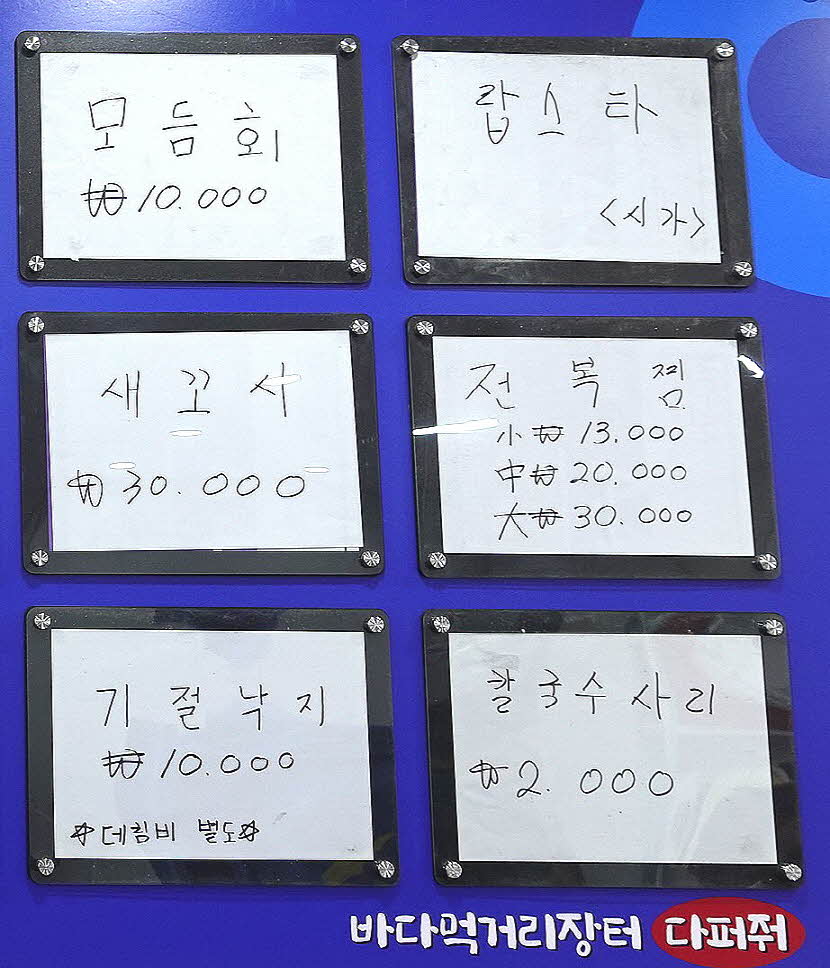 모듬회
₩10.000
랍스타
<시가>
새꼬시
₩30.000
전복찜
小₩13.000
中₩20.000
大₩30.000
기절낙지
₩10.000
☆데침비 별도☆
칼국수사리
₩2.000
바다먹거리장터 다퍼줘